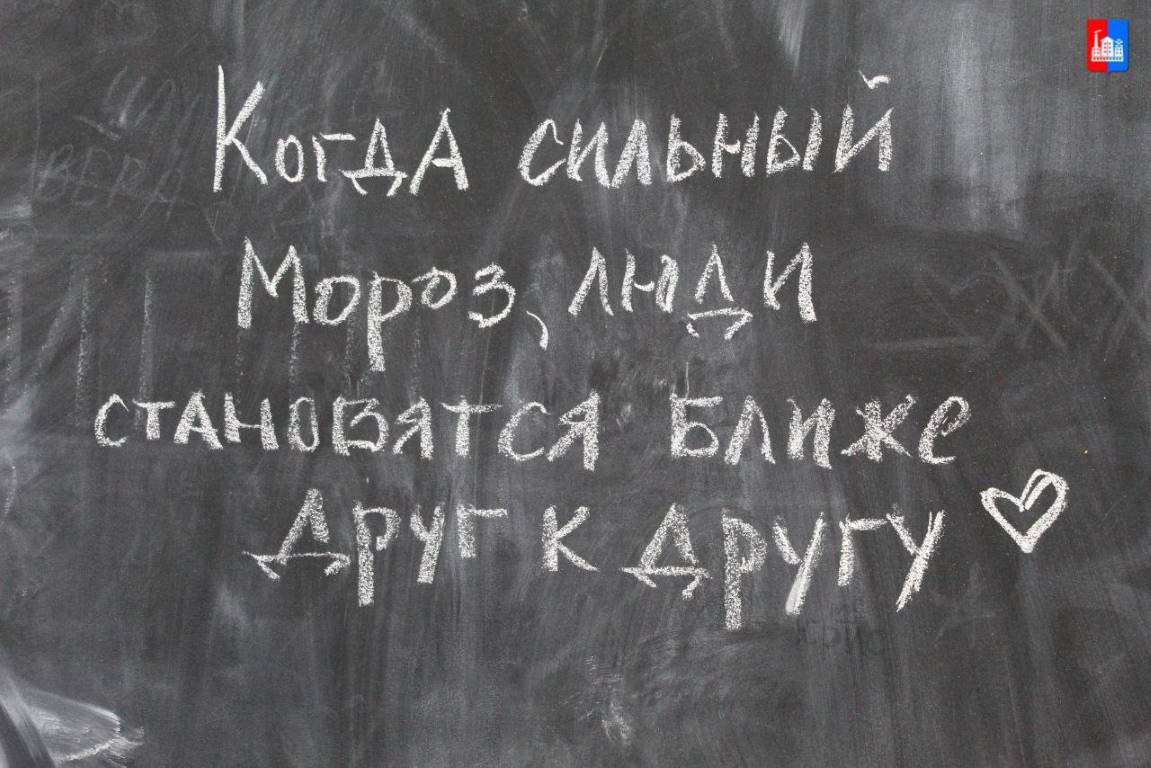 Когда сильный
Мороз, люди
становятся Ближе
Друг к Другу